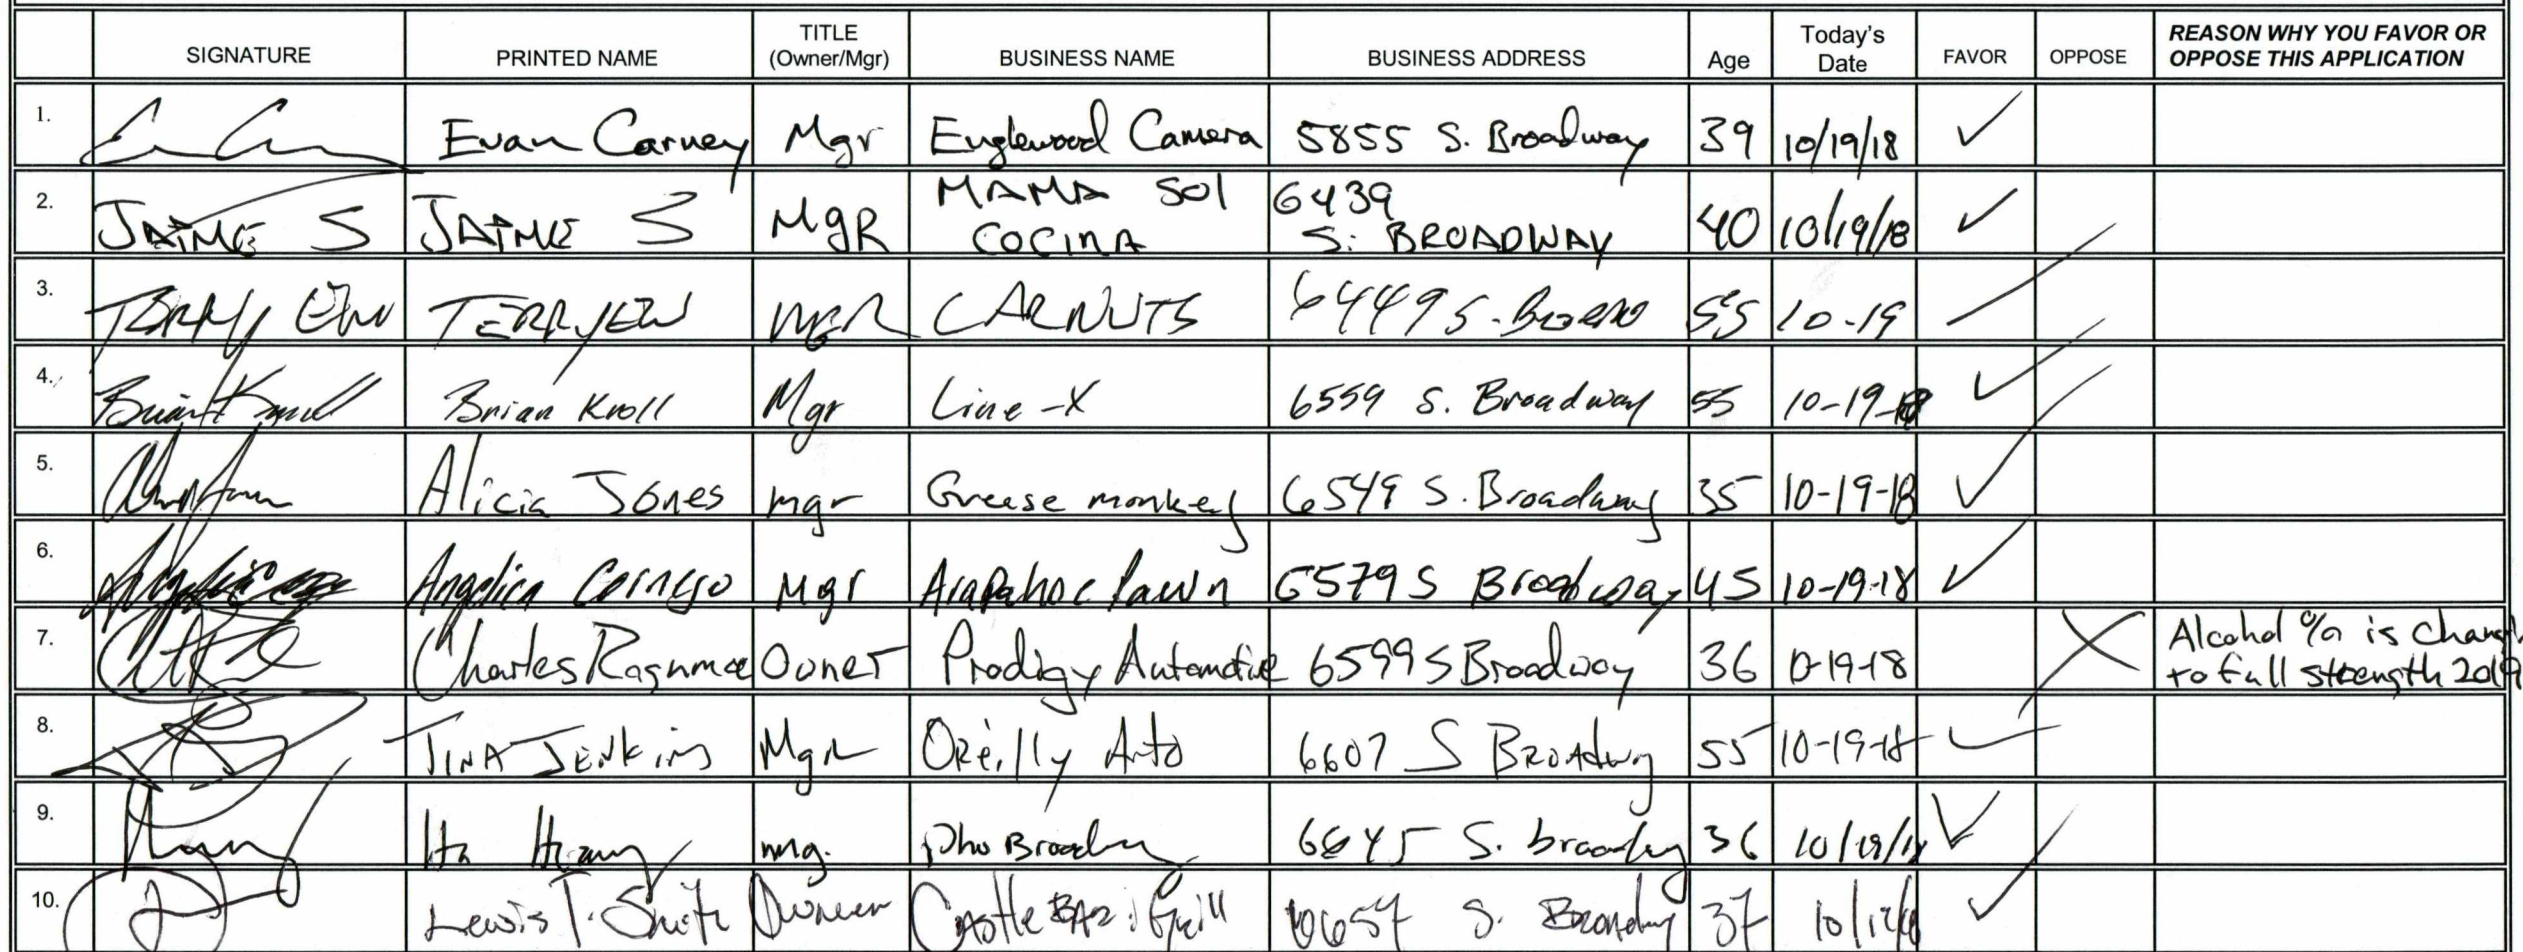 SIGNATURE PRINTED NAME TITLE (Owner/Mgr) BUSINESS NAME BUSINESS ADDRESS Age Today's Date FAVOR OPPOSE REASON WHY YOU FAVOR OR OPPOSE THIS APPLICATION
1. Evan Carney Mgr Englewood Camera 5855 S. Broadway 39 10/19/18 ✓
2. JAIME S JAIME S MgR MAMA SOl COCINA 6439 S. BROADWAY 40 10/19/18 ✓
3. TERRY EW TERRY EW MGR CARNUTS 6449 S. 55 10-19
4. Brian Kroll Brian Kroll Mgr Line-X 6559 S. Broadway 55 10-19-18 ✓
5. Alicia Jones mgr Grease monkey 6549 S. Broadway 35 10-19-18 ✓
6. Angelica Cornejo Mgr Arapahoe Pawn 6579 S Broadway 45 10-19-18 ✓
7. Charles Owner Prodigy Automotive 6599 S Broadway 36 10-19-18 X Alcohol % is to full strength 2019
8. TINA JENKins Mgr OReilly Auto 6607 S Broadway 55 10-19-18 ✓
9. mg. Pho Broadway 6645 S. broadway 36 10/19/18 ✓
10. Lewis T. Smith Owner Castle BAR & Grill 6657 S. Broadway 37 ✓